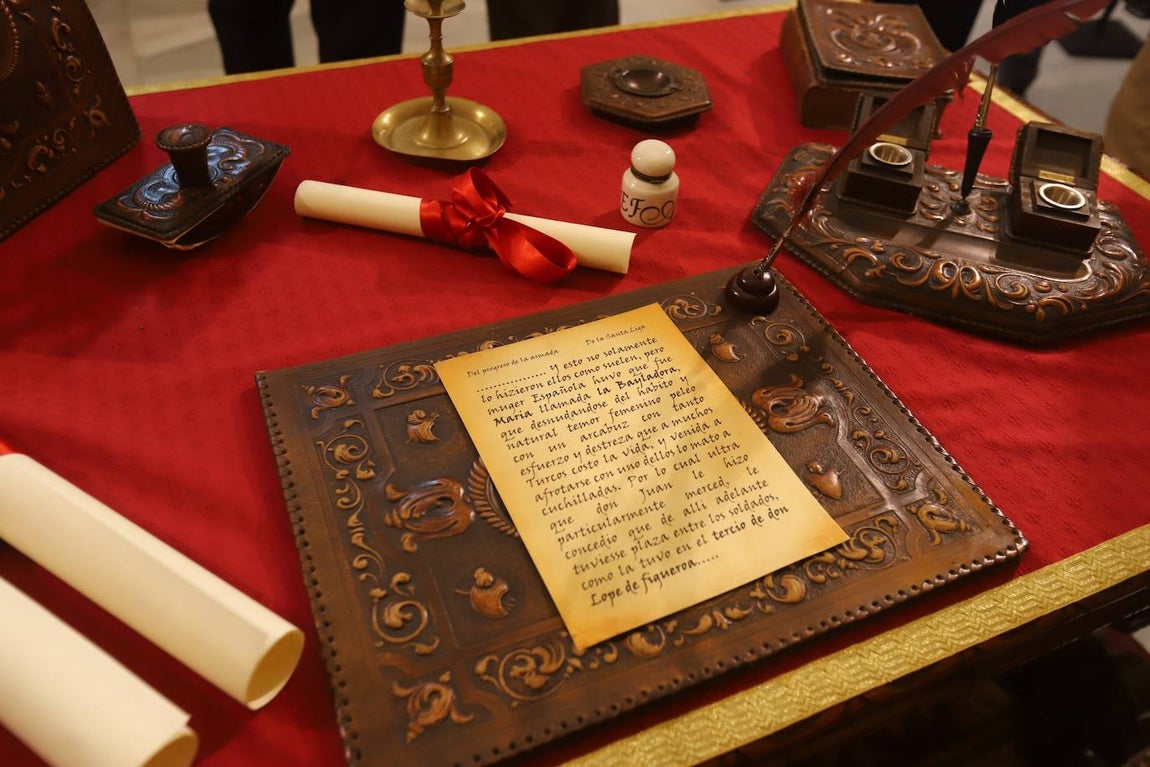 EFC
Del progreso de la armada De la Santa Liga
.................. Y esto no solamente
lo hizieron ellos como suelen, pero
muger Española huvo que fue
Maria llamada la Bayladora,
que desnudandose del habito y
natural temor femenino peleo
con un arcabuz con tanto
esfuerzo y destreza que a muchos
Turcos costo la vida, y venida a
afrotarse con uno dellos lo mato a
cuchilladas. Por lo cual ultra
que don Juan le hizo
particularmente merced, le
concedio que de alli adelante
tuviesse plaza entre los soldados,
como la tuvo en el tercio de don
Lope de figueroa.....